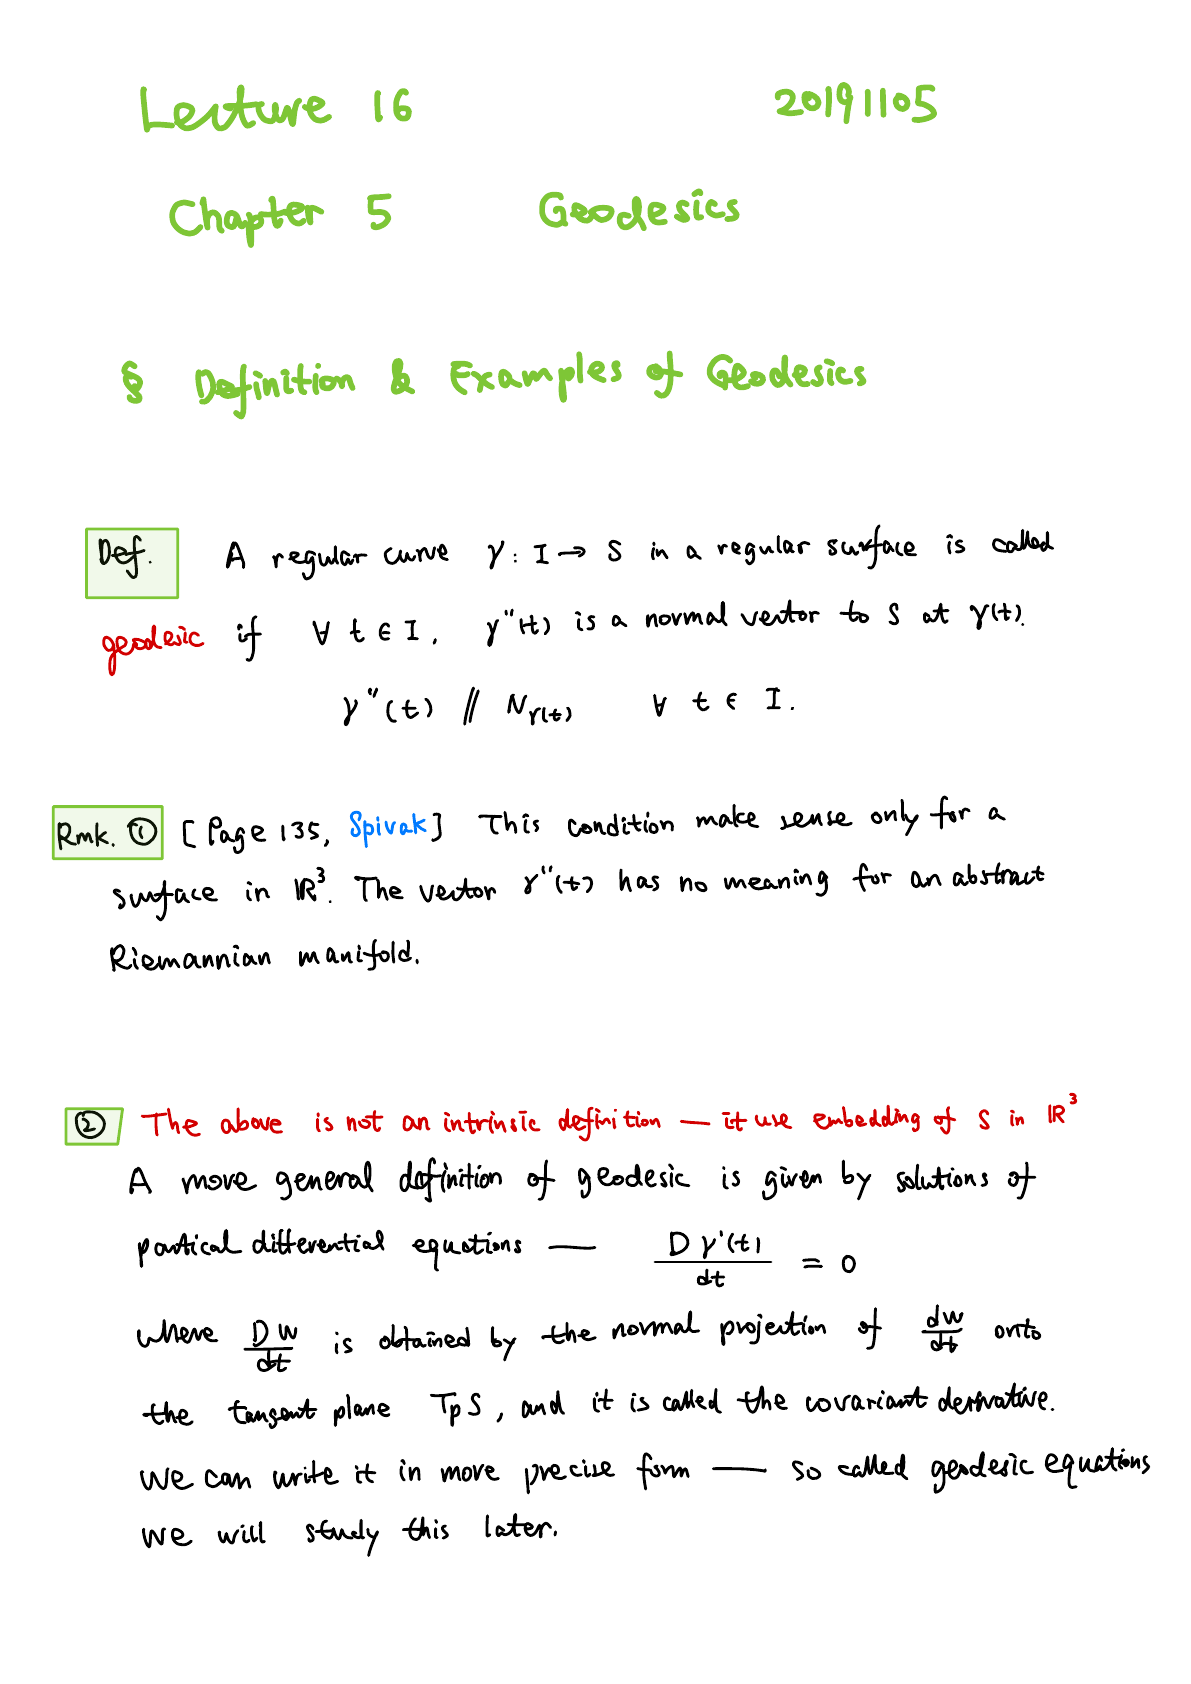 Lecture 16 20191105
Chapter 5 Geodesics
§ Definition & Examples of Geodesics
Def. A regular curve γ: I → S in a regular surface is called
geodesic if ∀ t ∈ I, γ''(t) is a normal vector to S at γ(t).
γ''(t) // N_γ(t) ∀ t ∈ I.
Rmk. ① [Page 135, Spivak] This condition make sense only for a
surface in ℝ³. The vector γ''(t) has no meaning for an abstract
Riemannian manifold.
② The above is not an intrinsic definition — it use embedding of S in ℝ³
A more general definition of geodesic is given by solutions of
partical differential equations — Dγ'(t)/dt = 0
where DW/dt is obtained by the normal projection of dW/dt onto
the tangent plane TpS, and it is called the covariant derivative.
We can write it in more precise form — so called geodesic equations
We will study this later.